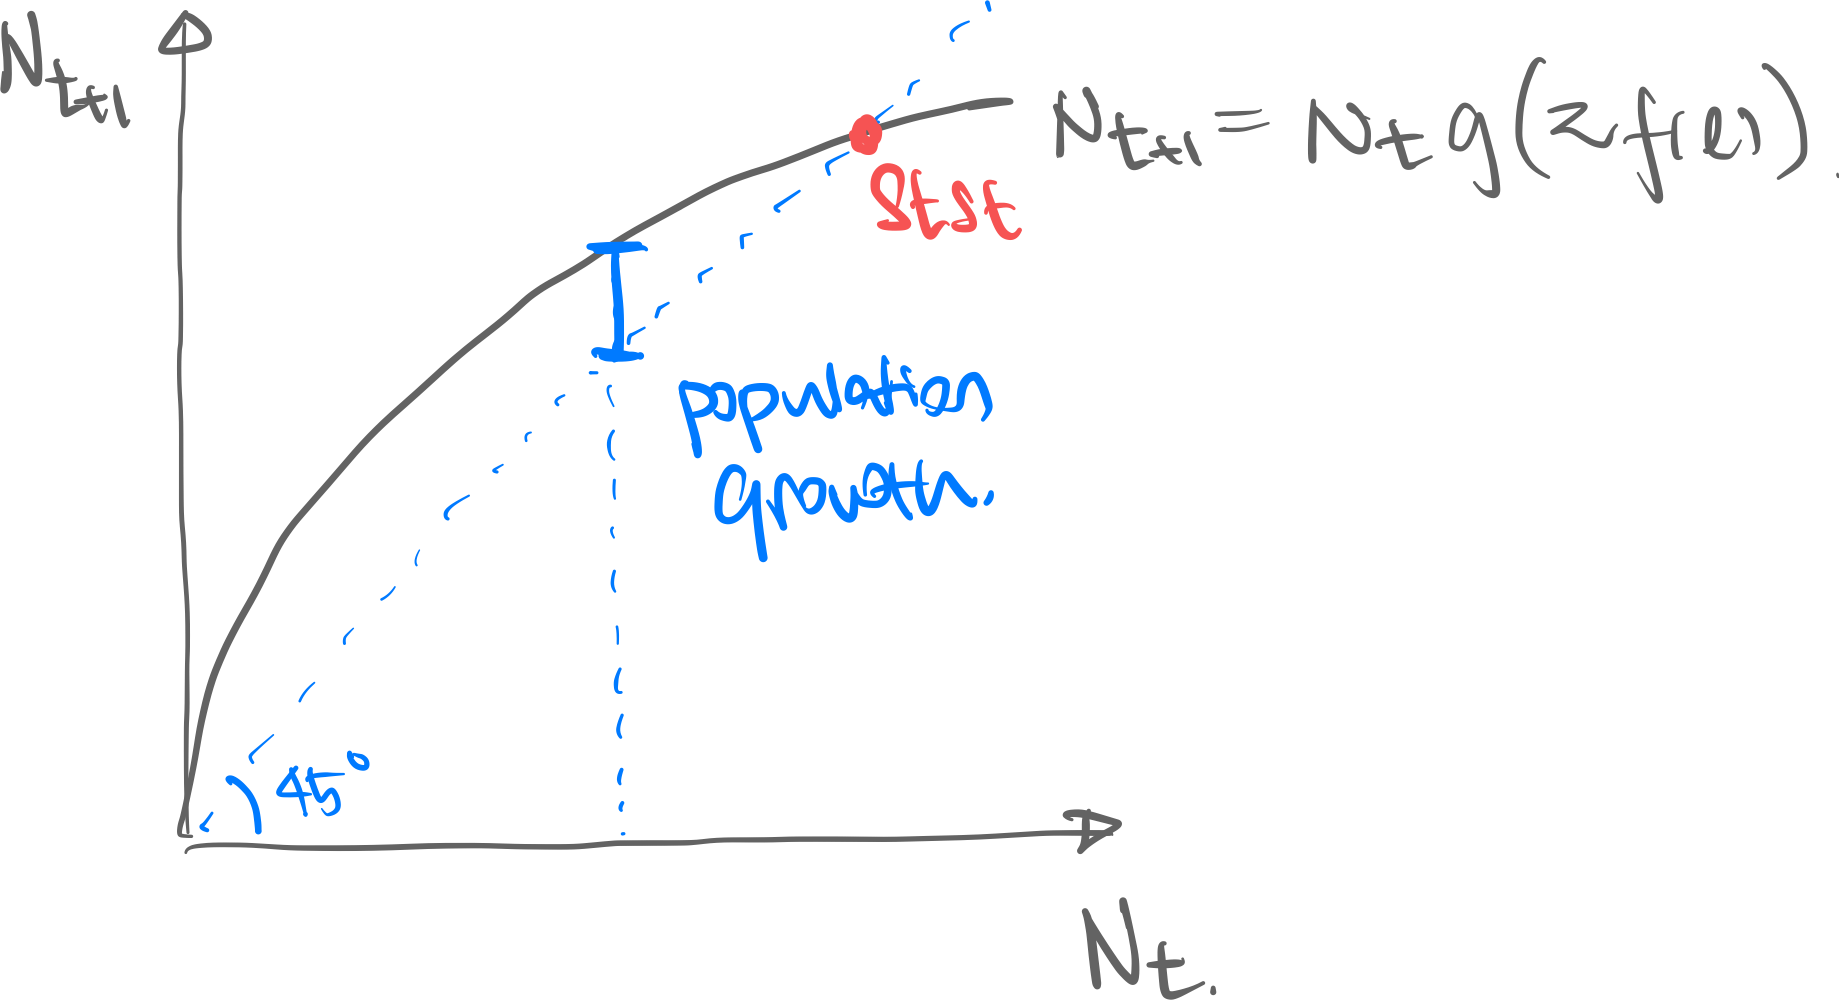 N_{t+1}
N_{t+1} = N_t g(z f(l)).
stst
population
growth.
45°
N_t.